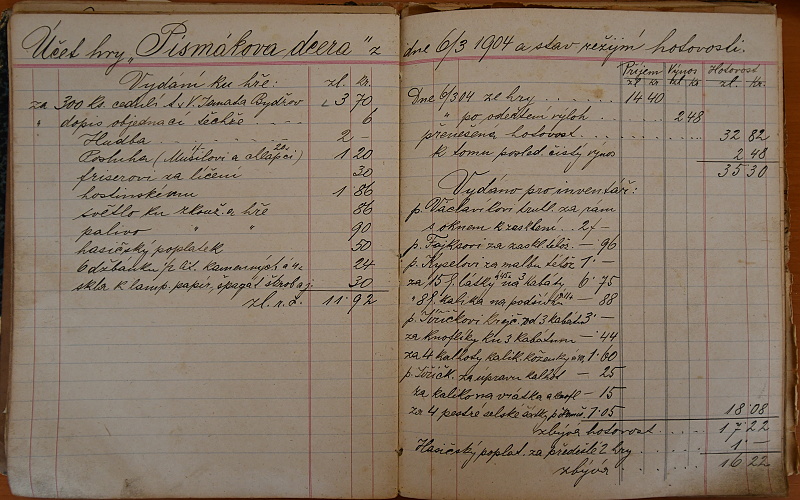 Účet hry „Písmákova dcera" z
Vydání ku hře: zl. kr.
za 300 ks. cedulí t. v V. Jenata Bydžov 3 70
" dopis objednací těchže 6
Hudba 2 –
Posluha (Musilovi a chlapci) 1 20
friserovi za líčení 30
hostinskému 1 86
světlo ku zkouš. a hře 86
palivo " " 90
hasičský poplatek 50
6 džbánků lit. kamenných á 4 24
skla k lamp. papír, špagát, škrob aj. 30
zl. r. č. 11 92
dne 6/3 1904 a stav režijní hotovosti.
Příjem Výnos Hotovost
zl kr zl kr zl. kr.
Dne 6/3 04 ze hry 14 40
" po odečtení výloh 2 48
přenešena hotovost 32 82
k tomu posled. čistý výnos 2 48
35 30
Vydáno pro inventář:
p. Václavíkovi truhl. za rám
s oknem k zasklení 2 –
p. Fajksovi za zaskl. téhož – 96
p. Kyselovi za malbu téhož 1 –
za 15 l. látky na 3 kabáty 6 75
" 8 l. kalika na podšívku – 88
p. Šoříčkovi krejč. od 3 kabátů 3 –
za knoflíky ku 3 kabátům – 44
za 4 kalhoty kalik. 1 60
p. Šoříčk. za úpravu kalhot – 25
za kaliko na vrátka – 15
za 4 pestré selské 1 05
18 08
zbývá hotovost 17 22
Hasičský poplat. za předešlé 2 hry 1 –
zbývá 16 22